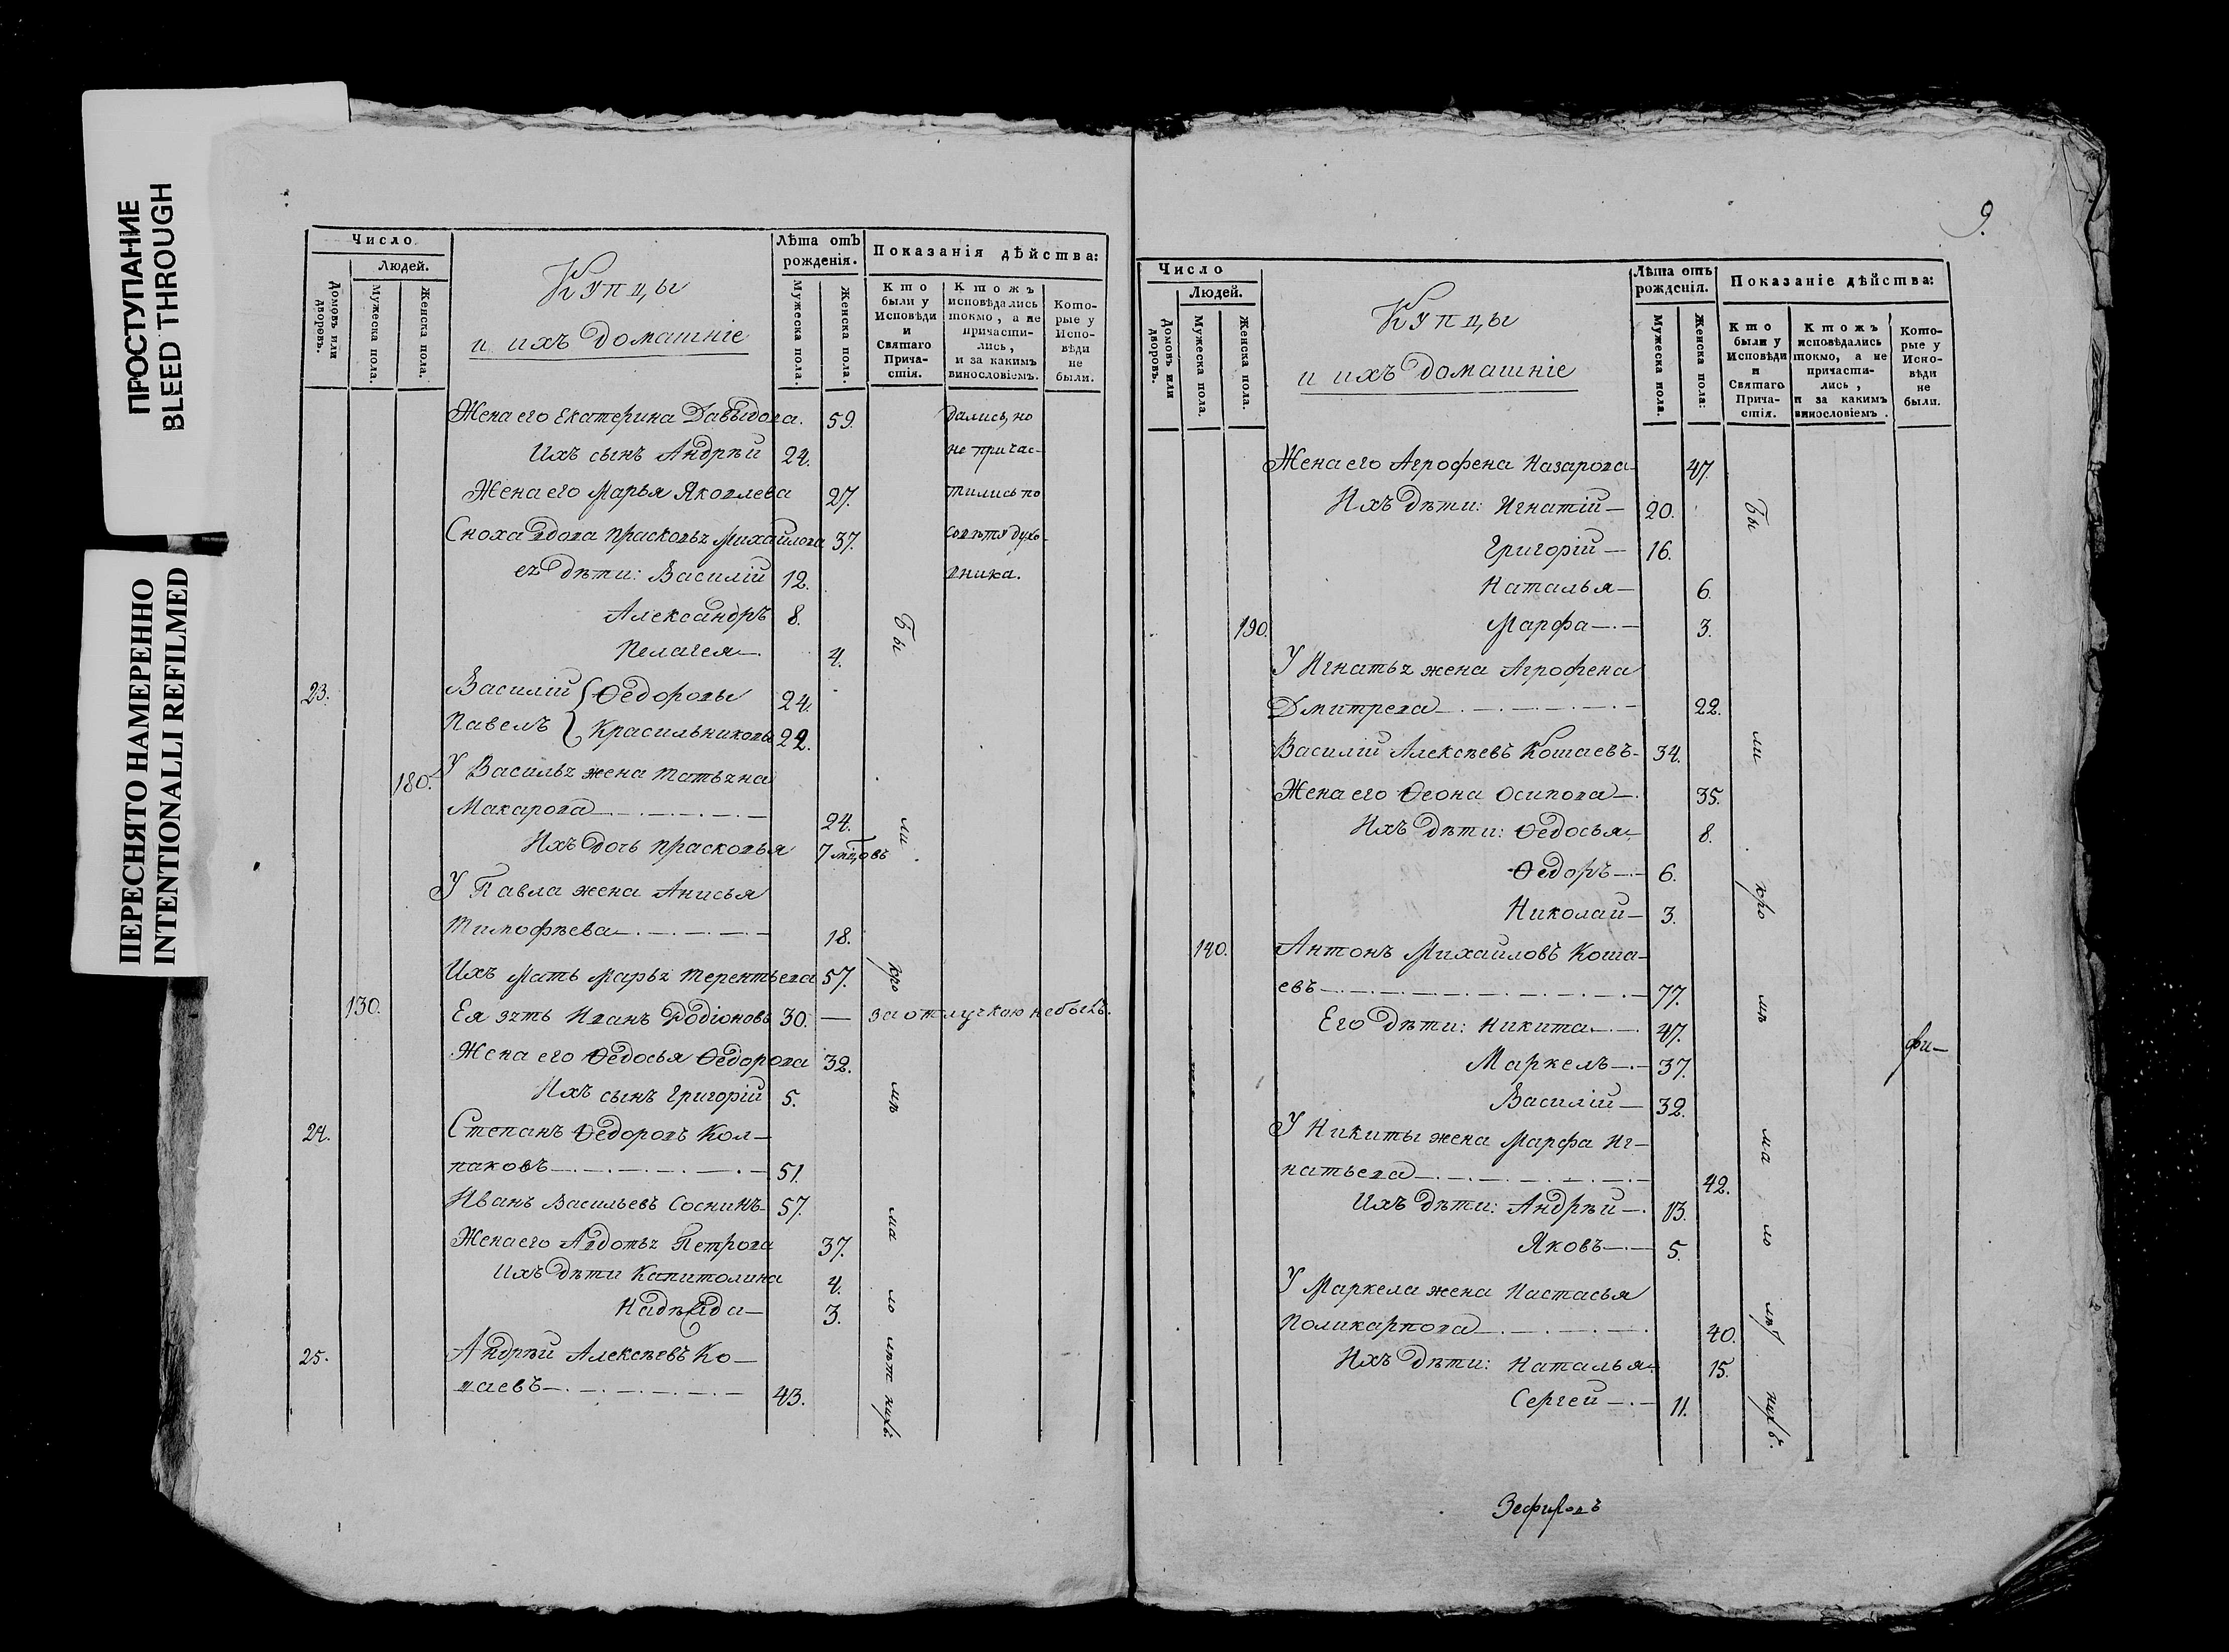 ПРОСТУПАНИЕ
BLEED THROUGH
ПЕРЕСНЯТО НАМЕРЕННО
INTENTIONALLI REFILMED
Число
Людей.
Домовъ или дворовъ.
Мужеска пола.
Женска пола.
Купцы
и ихъ домашніе
Лѣта отъ рожденія.
Мужеска пола.
Женска пола.
Показанія дѣйства:
Кто были у Исповѣди и Святаго Прича-стія.
Ктожъ исповѣдались токмо, а не причасти-лись, и за какимъ винословіемъ.
Кото-рые у Испо-вѣди не были.
Жена его Екатерина Давыдова. 59. дались, но
Ихъ сынъ Андрѣй 24. не причас-
Жена его Марья Яковлева 27. тились по
Сноха вдова Прасковья Михайлова 37. совѣту духо-
ея дѣти: Василій 12. вника.
Александръ 8.
Пелагея — 4.
23. Василій { Ѳедоровы 24.
Павелъ { Красильниковы 22.
180. У Василья жена Татьяна
Макарова — 24.
Ихъ дочь Прасковья 7 мцовъ
У Павла жена Анисья
Тимофѣева — 18.
Ихъ мать Марья Терентьева 57.
130. Ея зять Иванъ Родіоновъ 30. — за отлучкою не былъ.
Жена его Ѳедосья Ѳедорова 32.
Ихъ сынъ Григорій 5.
24. Степанъ Ѳедоровъ Кол-
паковъ — 51.
Иванъ Васильевъ Соснинъ 57.
Жена его Авдотья Петрова 37.
Ихъ дѣти Капитолина 4.
Надежда — 3.
25. Андрѣй Алексѣевъ Ко-
шаевъ — 43.
Бы
ли
кро
мѣ
ма
ло
лѣт
нихъ.
9.
Число
Людей.
Домовъ или дворовъ.
Мужеска пола.
Женска пола.
Купцы
и ихъ домашніе
Лѣта отъ рожденія.
Мужеска пола.
Женска пола:
Показаніе дѣйства:
Кто были у Исповѣди и Святаго Прича-стія.
Ктожъ исповѣдались токмо, а не причасти-лись, и за какимъ винословіемъ.
Кото-рые у Испо-вѣди не были.
Жена его Агрофена Назарова — 47.
Ихъ дѣти: Игнатій — 20.
Григорій — 16.
Наталья — 6.
190. Марфа — 3.
У Игнатья жена Агрофена
Дмитрева — 22.
Василій Алексѣевъ Кошаевъ — 34.
Жена его Ѳеона Осипова — 35.
Ихъ дѣти: Ѳедосья — 8.
Ѳедоръ — 6.
Николай — 3.
140. Антонъ Михайловъ Коша-
евъ — 77.
Его дѣти: Никита — 47.
Маркелъ — 37.
Василій — 32.
У Никиты жена Марфа Иг-
натьева — 42.
Ихъ дѣти: Андрѣй — 13.
Яковъ — 5.
У Маркела жена Настасья
Поликарпова — 40.
Ихъ дѣти: Наталья 15.
Сергей — 11.
Бы
ли
кро
мѣ
ма
ло
лѣт
нихъ.
фи—
Зефировъ